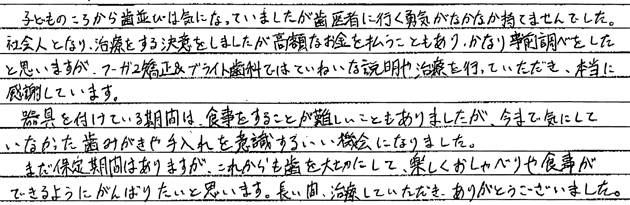 子どものころから歯並びは気になっていましたが歯医者に行く勇気がなかなか持てませんでした。
社会人となり、治療をする決意をしましたが高額なお金を払うこともあり、かなり事前調べをした
と思いますが、フーガ2矯正&ブライト歯科ではていねいな説明や治療を行っていただき、本当に
感謝しています。
器具を付けている期間は、食事をすることが難しいこともありましたが、今まで気にして
いなかった歯みがきや手入れを意識するいい機会になりました。
まだ保定期間はありますが、これからも歯を大切にして、楽しくおしゃべりや食事が
できるようにがんばりたいと思います。長い間、治療していただき、ありがとうございました。